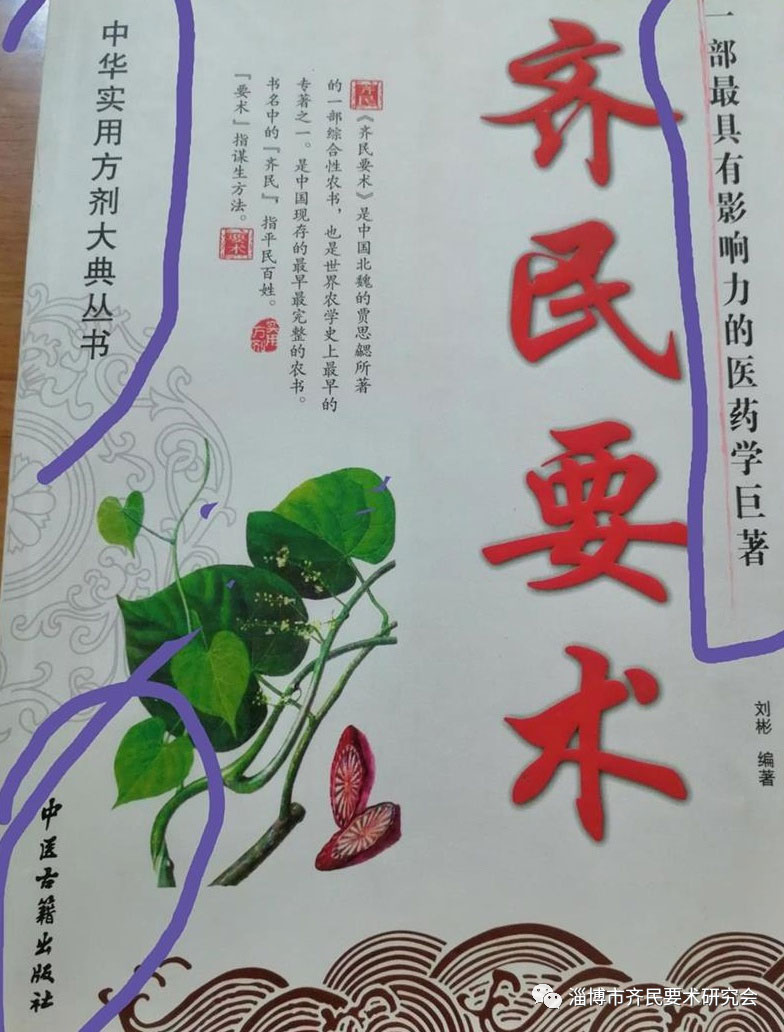 一部最具有影响力的医药学巨著
齐民要术
刘彬 编著
齐民
《齐民要术》是中国北魏的贾思勰所著
的一部综合性农书，也是世界农学史上最早的
专著之一。是中国现存的最早最完整的农书。
书名中的“齐民”，指平民百姓。
“要术”指谋生方法。
要术
实用方剂
中华实用方剂大典丛书
中医古籍出版社
淄博市齐民要术研究会